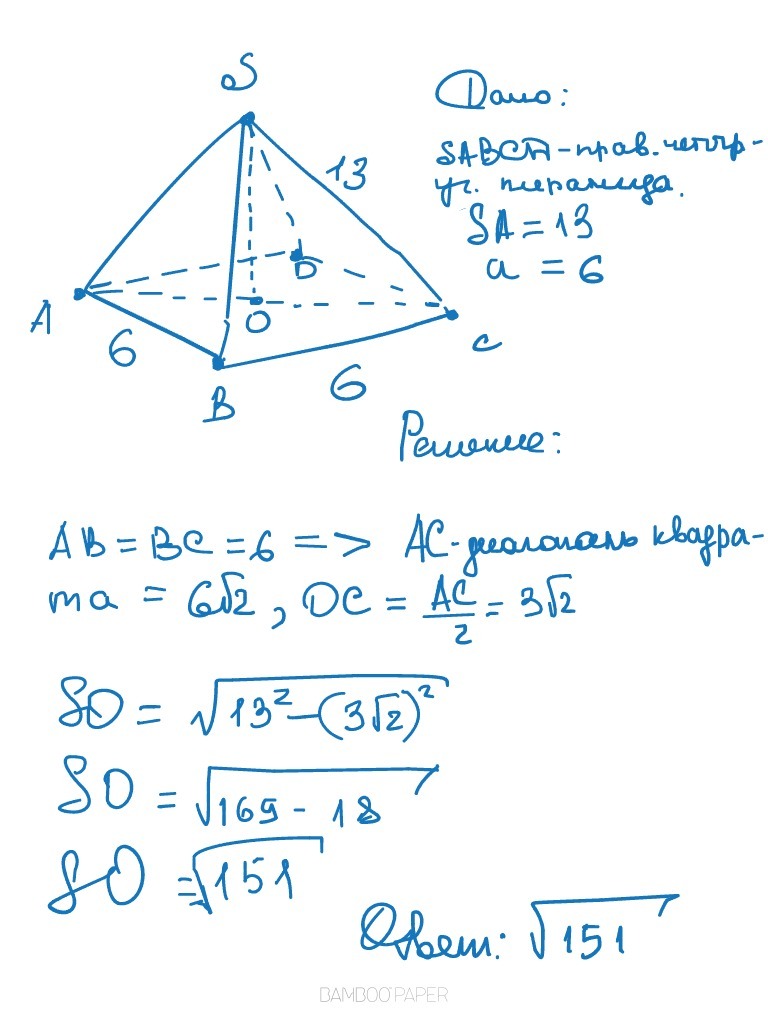 S
Дано:
SABCD - прав. четыр-
уг. пирамида.
13
SA = 13
a = 6
D
A
O
C
6
6
B
Решение:
AB = BC = 6 => AC - диагональ квадра-
та = 6√2, OC = AC/2 = 3√2
SO = √(13² - (3√2)²)
SO = √(169 - 18)
SO = √151
Ответ: √151
BAMBOO PAPER